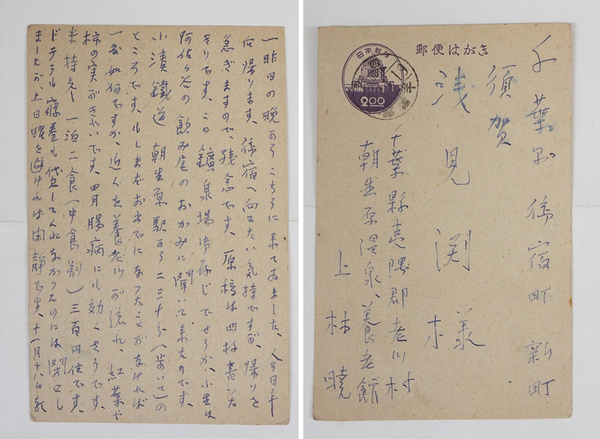 一昨日の晩からこちらに来てゐました。今日千
向帰ります。稲宿へ向ひたい気持ですが、帰りを
急ぎますので、残念です。原稿は四枚書いた
きりです。この鑛泉場御存じでせうか、小生は
阿佐ヶ谷の飲み屋のおかみに聞いて来たのです。
小湊鐵道 朝生原駅から二三十分(歩いて)の
ところです。もしまだおいでになつたことがなければ
一度如何ですか、近くを養老川が流れ、紅葉や
柿の実がきれいです。胃腸病にも効くさうです。
米持先し 一泊二食(中食別)三百四位です。
ドテラも寝巻も貸してくれなかつたのには閉口し
ましたが土日曜を避ければ閑静です、十一月十八日朝
郵便はがき
日本郵便
200
千葉県 稲宿町 新町
須賀
浅見渕様
千葉縣夷隅郡老川村
朝生原温泉 養老館
上林暁